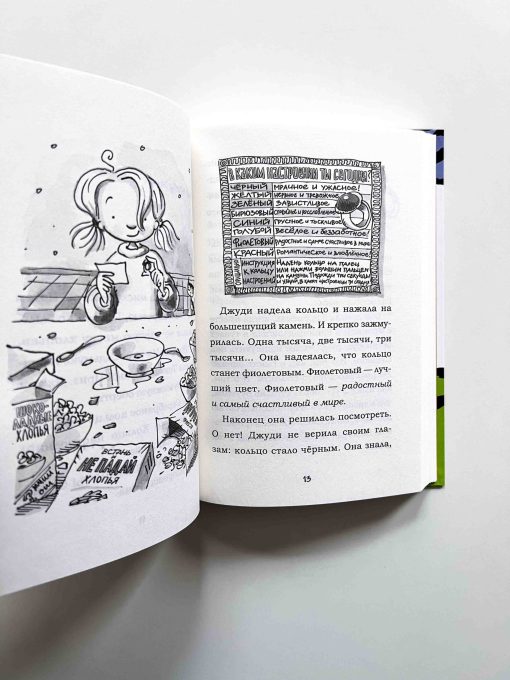 ШОКО-
ЛАДНЫЕ
ХЛОПЬЯ
ВСТАНЬ
НЕ ПАДАЙ
ХЛОПЬЯ
В КАКОМ НАСТРОЕНИИ ТЫ СЕГОДНЯ?
ЧЕРНЫЙ МРАЧНОЕ И УЖАСНОЕ!
ЖЁЛТЫЙ НЕРВНОЕ И ТРЕВОЖНОЕ
ЗЕЛЁНЫЙ ЗАВИСТЛИВОЕ
БИРЮЗОВЫЙ СПОКОЙНОЕ И РАССЛАБЛЕННОЕ
СИНИЙ ГРУСТНОЕ И ТОСКЛИВОЕ
ГОЛУБОЙ ВЕСЁЛОЕ И БЕЗЗАБОТНОЕ!
ФИОЛЕТОВЫЙ РАДОСТНОЕ И САМОЕ СЧАСТЛИВОЕ В МИРЕ
КРАСНЫЙ РОМАНТИЧЕСКОЕ И ВЛЮБЛЁННОЕ!
ИНСТРУКЦИЯ К КОЛЬЦУ НАСТРОЕНИЯ
НАДЕНЬ КОЛЬЦО НА ПАЛЕЦ
ИЛИ НАЖМИ БОЛЬШИМ ПАЛЬЦЕМ
НА КАМЕНЬ. ПОДОЖДИ ТРИ СЕКУНДЫ
Джуди надела кольцо и нажала на
большешущий камень. И крепко зажму-
рилась. Одна тысяча, две тысячи, три
тысячи... Она надеялась, что кольцо
станет фиолетовым. Фиолетовый — луч-
ший цвет. Фиолетовый — радостный
и самый счастливый в мире.
Наконец она решилась посмотреть.
О нет! Джуди не верила своим гла-
зам: кольцо стало чёрным. Она знала,
13